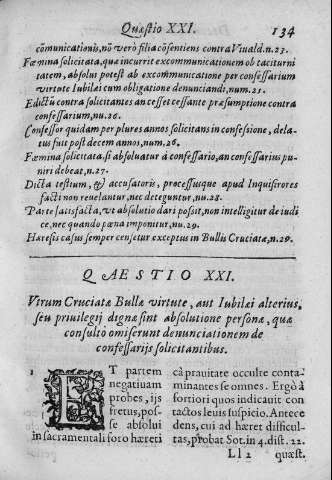 Quæstio XXI. 134
cõmunicationis, nõ verò filia cõsentiens contra Viuald. n.23.
Fœmina solicitata, quæ incurrit excommunicationem ob taciturni
tatem, absolui potest ab excommunicatione per confessarium
virtute Iubilei cum obligatione denunciandi, num.25.
Edictũ contra solicitantes an cesset cessante præsumptione contra
confessarium, nu.26.
Confessor quidam per plures annos solicitans in confessione, dela-
tus fuit post decem annos, num.26.
Fœmina solicitata, si absoluatur à confessario, an confessarius pu-
niri debeat, n.27.
Dicta testium, & accusatoris, processusque apud Inquisitores
facti non reuelantur, nec deteguntur, nu.28.
Parte satisfacta, vt absolutio dari possit, non intelligitur de iudi
ce, nec quando pœna imponitur, nu.29.
Hæresis casus semper censetur exceptus in Bullis Cruciatæ, n.29.
QVAESTIO XXI.
Vtrum Cruciatæ Bullæ virtute, aut Iubilæi alterius,
seu priuilegij dignæ sint absolutione personæ, quæ
consultò omiserunt denunciationem de
confessarijs solicitantibus.
1 ET partem
negatiuam
probes, ijs
fretus, pos-
se absolui
in sacramentali foro hæreti
cà prauitate occulte conta-
minantes se omnes. Ergò à
fortiori quos indicauit con
tactos leuis suspicio. Antece
dens, cui ad hæret difficul-
tas, probat Sot. in 4. dist. 22.
Ll 2 quæst.